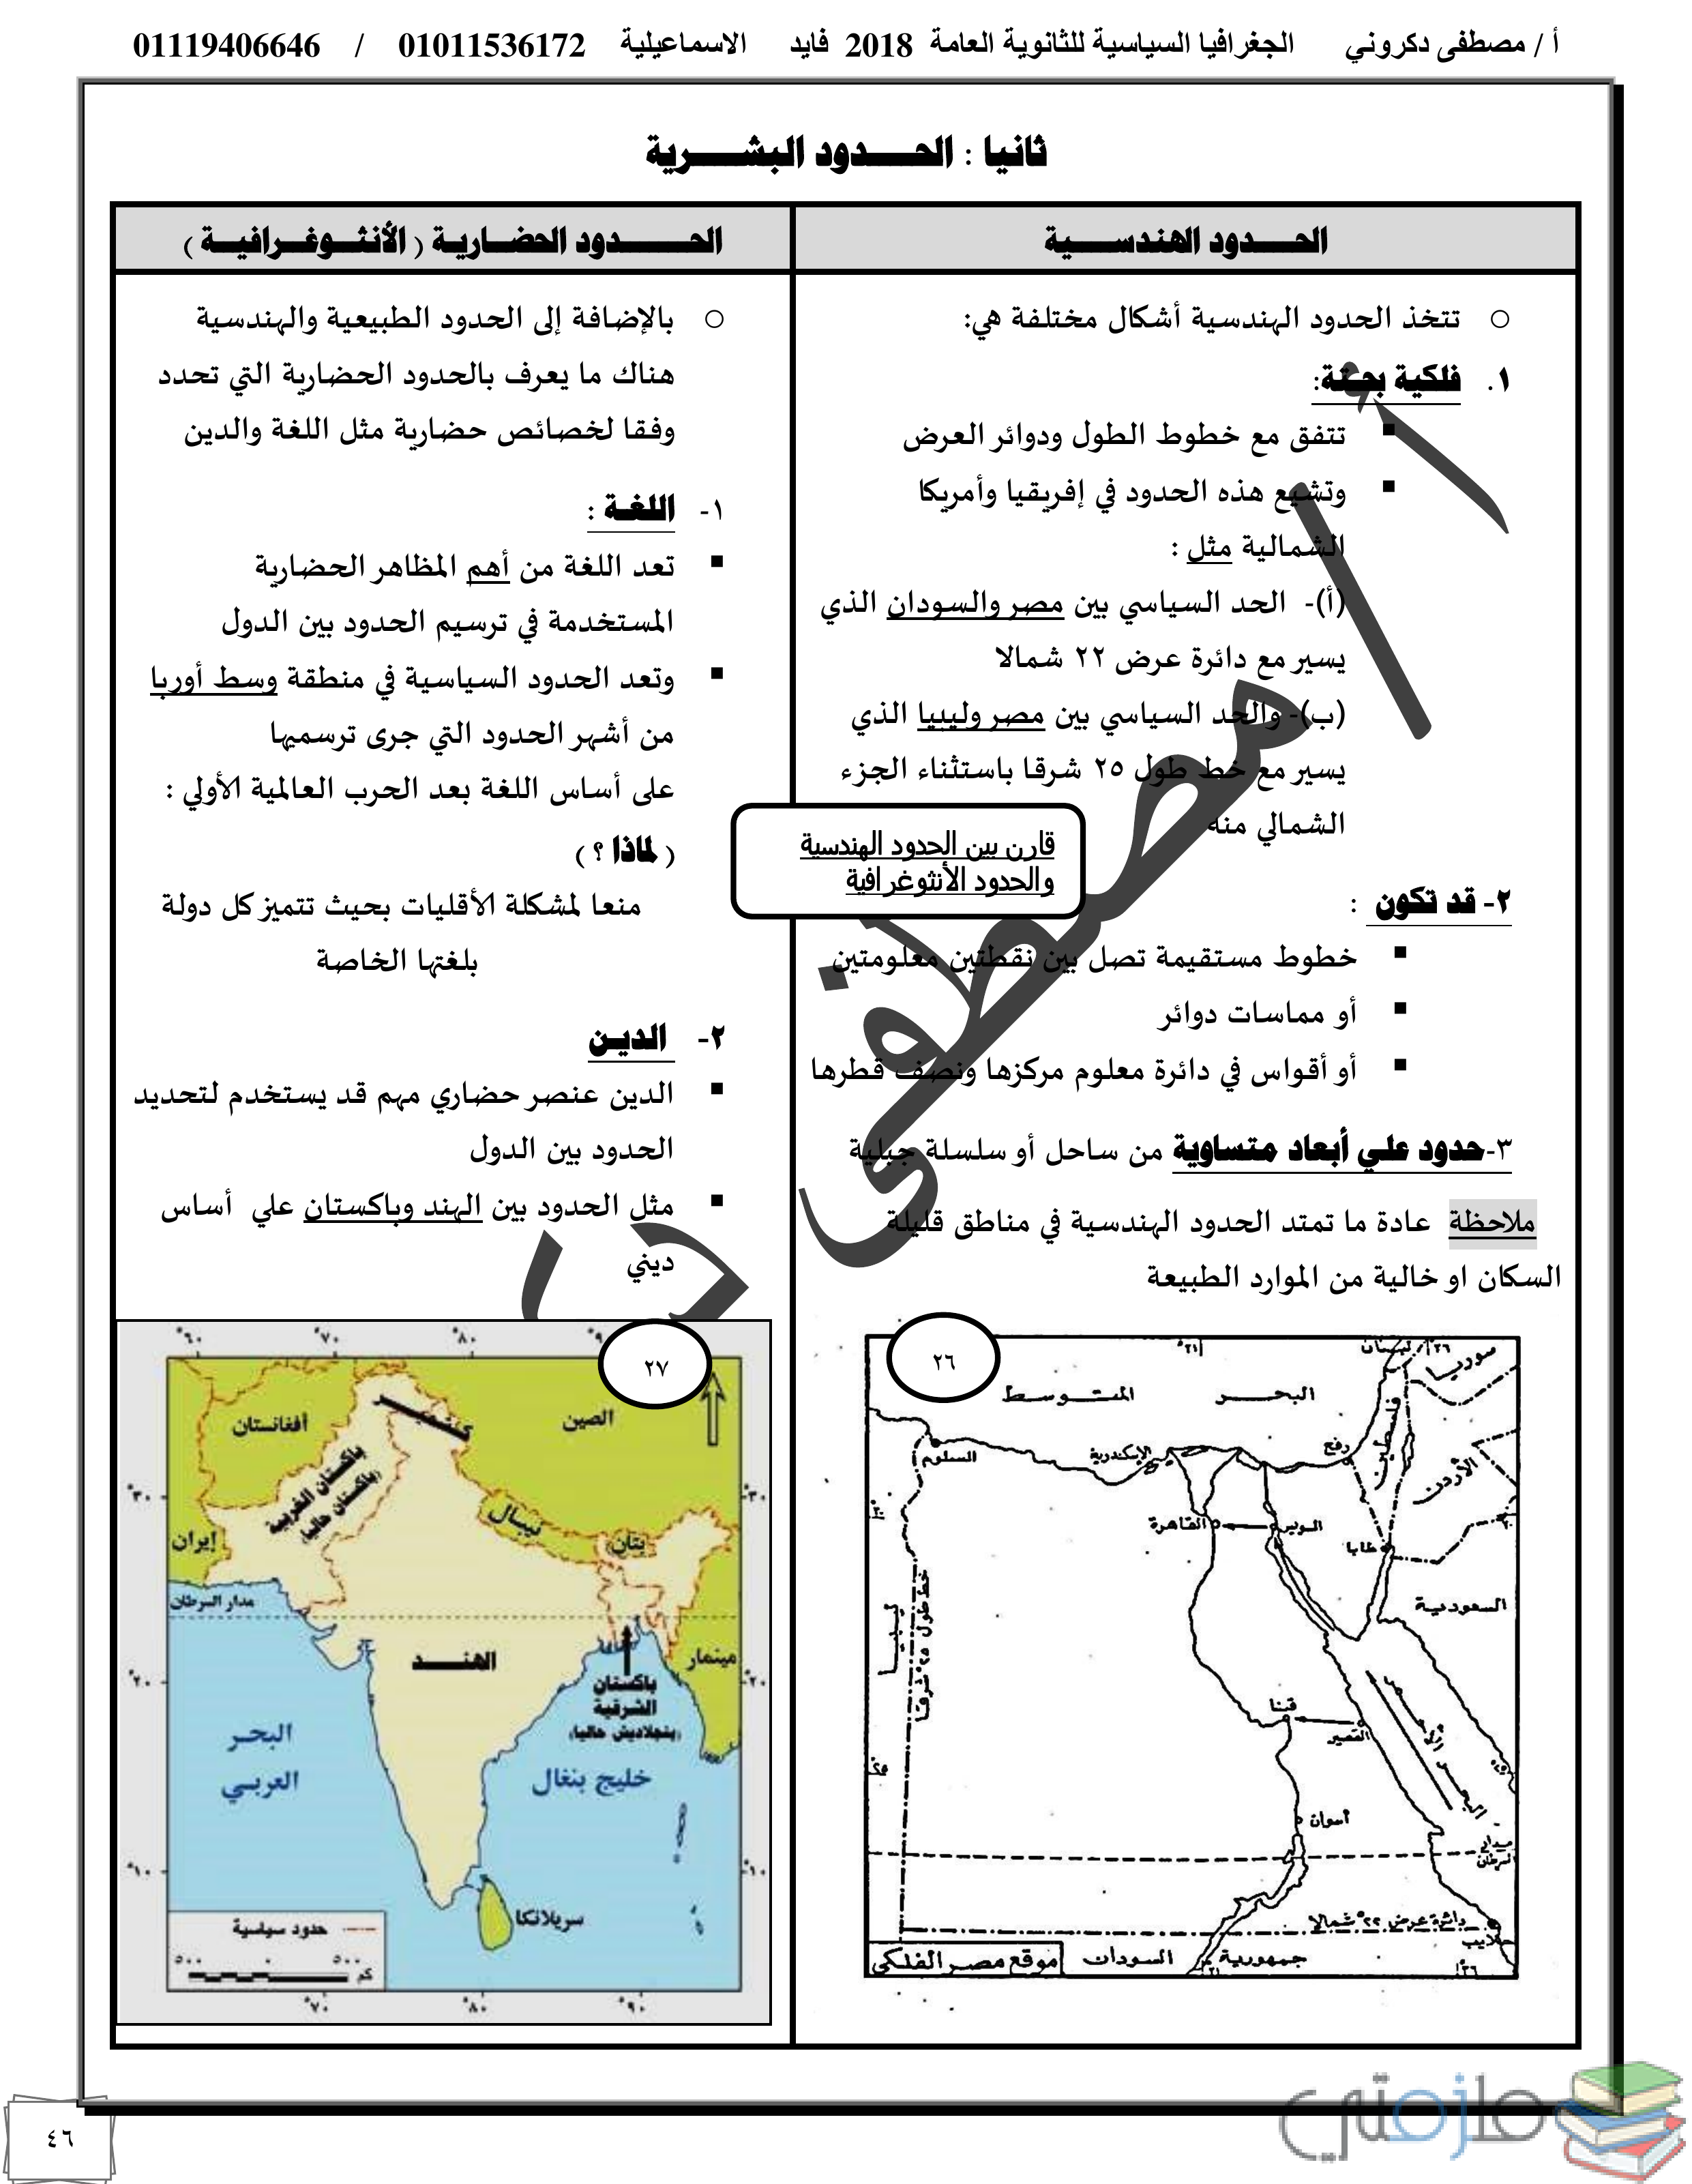 أ / مصطفى دكروني الجغرافيا السياسية للثانوية العامة 2018 فايد الاسماعيلية 01011536172 / 01119406646
ثانيا : الحـــدود البشـــرية
الحـــدود الهندســـية
تتخذ الحدود الهندسية أشكال مختلفة هي:
١. فلكية بحتة:
تتفق مع خطوط الطول ودوائر العرض
وتشيع هذه الحدود في إفريقيا وأمريكا
الشمالية مثل :
(أ)- الحد السياسي بين مصر والسودان الذي
يسير مع دائرة عرض ٢٢ شمالا
(ب)- والحد السياسي بين مصر وليبيا الذي
يسير مع خط طول ٢٥ شرقا باستثناء الجزء
الشمالي منه
٢- قد تكون :
خطوط مستقيمة تصل بين نقطتين معلومتين
أو مماسات دوائر
أو أقواس في دائرة معلوم مركزها ونصف قطرها
٣-حدود علي أبعاد متساوية من ساحل أو سلسلة جبلية
ملاحظة عادة ما تمتد الحدود الهندسية في مناطق قليلة
السكان او خالية من الموارد الطبيعة
الحـــدود الحضـارية ( الأنثـوغـرافيـة )
بالإضافة إلى الحدود الطبيعية والهندسية
هناك ما يعرف بالحدود الحضارية التي تحدد
وفقا لخصائص حضارية مثل اللغة والدين
١- اللغـة :
تعد اللغة من أهم المظاهر الحضارية
المستخدمة في ترسيم الحدود بين الدول
وتعد الحدود السياسية في منطقة وسط أوربا
من أشهر الحدود التي جرى ترسمها
على أساس اللغة بعد الحرب العالمية الأولي :
( لماذا ؟ )
منعا لمشكلة الأقليات بحيث تتميز كل دولة
بلغتها الخاصة
٢- الديـن
الدين عنصر حضاري مهم قد يستخدم لتحديد
الحدود بين الدول
مثل الحدود بين الهند وباكستان علي أساس
ديني
قارن بين الحدود الهندسية
والحدود الأنثوغرافية
أ / مصطفى
٢٦
لبنان
٣٦°
سوريا
البحـــر المتـوسـط
فلسطين
رفح
الإسكندرية
السلوم
الأردن
السويس
القاهرة
طابا
السعودية
ليبيا
خط طول ٢٥° شرقا
قنا
القصير
البحر الأحمر
أسوان
مدار
السرطان
دائرة عرض ٢٢° شمالا
حلايب
جمهورية السودان
موقع مصر الفلكي
٢٧
٦٠° ٧٠° ٨٠°
كشمير
الصين
أفغانستان
باكستان الغربية
(باكستان حاليا)
٣٠° ٣٠°
نيبال
بتان
إيران
مدار السرطان
الهنـــد
مينمار
باكستان
الشرقية
(بنجلاديش حاليا)
٢٠° ٢٠°
البحـر
العربـي
خليج بنغال
١٠° ١٠°
سريلانكا
حدود سياسية
٥٠٠ ٠ ٥٠٠
كم
٧٠° ٨٠° ٩٠°
ملزمتي
٤٦